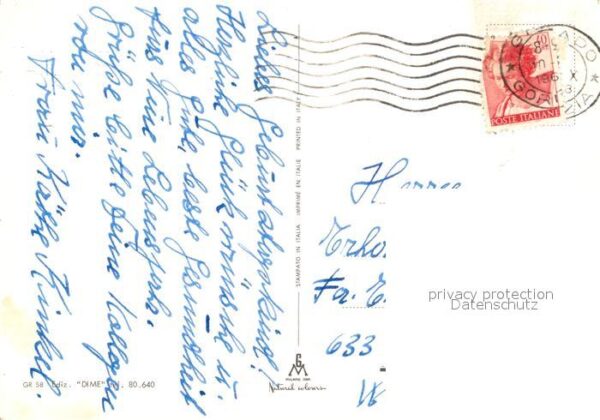 Liebes Geburtstagskind!
Herzliche Glückwünsche u.
alles Gute, beste Gesundheit
fürs neue Lebensjahr.
Grüße bitte Deine Kollegen
von mir.
Käthe Kinkel.
STAMPATO IN ITALIA IMPRIMÉ EN ITALIE PRINTED IN ITALY
GR 58 Ediz. "DIME" 80.640
MILANO
Natural colours
GRADO
GORIZIA
POSTE ITALIANE
Fa. E
633
privacy protection
Datenschutz